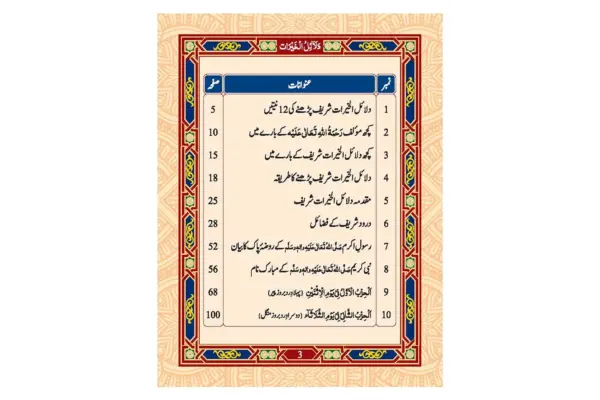 دَلَآئِلُ الْخَیْرَات
نمبر عنوانات صفحہ
1 دلائل الخیرات شریف پڑھنے کی 12 نیتیں 5
2 کچھ مؤلف رَحْمَۃُ اللہِ تَعَالٰی عَلَیْہ کے بارے میں 10
3 کچھ دلائل الخیرات شریف کے بارے میں 15
4 دلائل الخیرات شریف پڑھنے کا طریقہ 18
5 مقدمہ دلائل الخیرات شریف 25
6 درود شریف کے فضائل 28
7 رسولِ اکرم صَلَّی اللہُ تَعَالٰی عَلَیْہِ وَاٰلِہٖ وَسَلَّم کے روضۂ پاک کا بیان 52
8 نبی کریم صَلَّی اللہُ تَعَالٰی عَلَیْہِ وَاٰلِہٖ وَسَلَّم کے مبارک نام 56
9 اَلْحِزْبُ الْاَوَّلُ فِیْ یَوْمِ الْاِثْنَیْنِ (پہلا ورد بروز پیر) 68
10 اَلْحِزْبُ الثَّانِیْ فِیْ یَوْمِ الثَّلَاثَآء (دوسرا ورد بروز منگل) 100
3